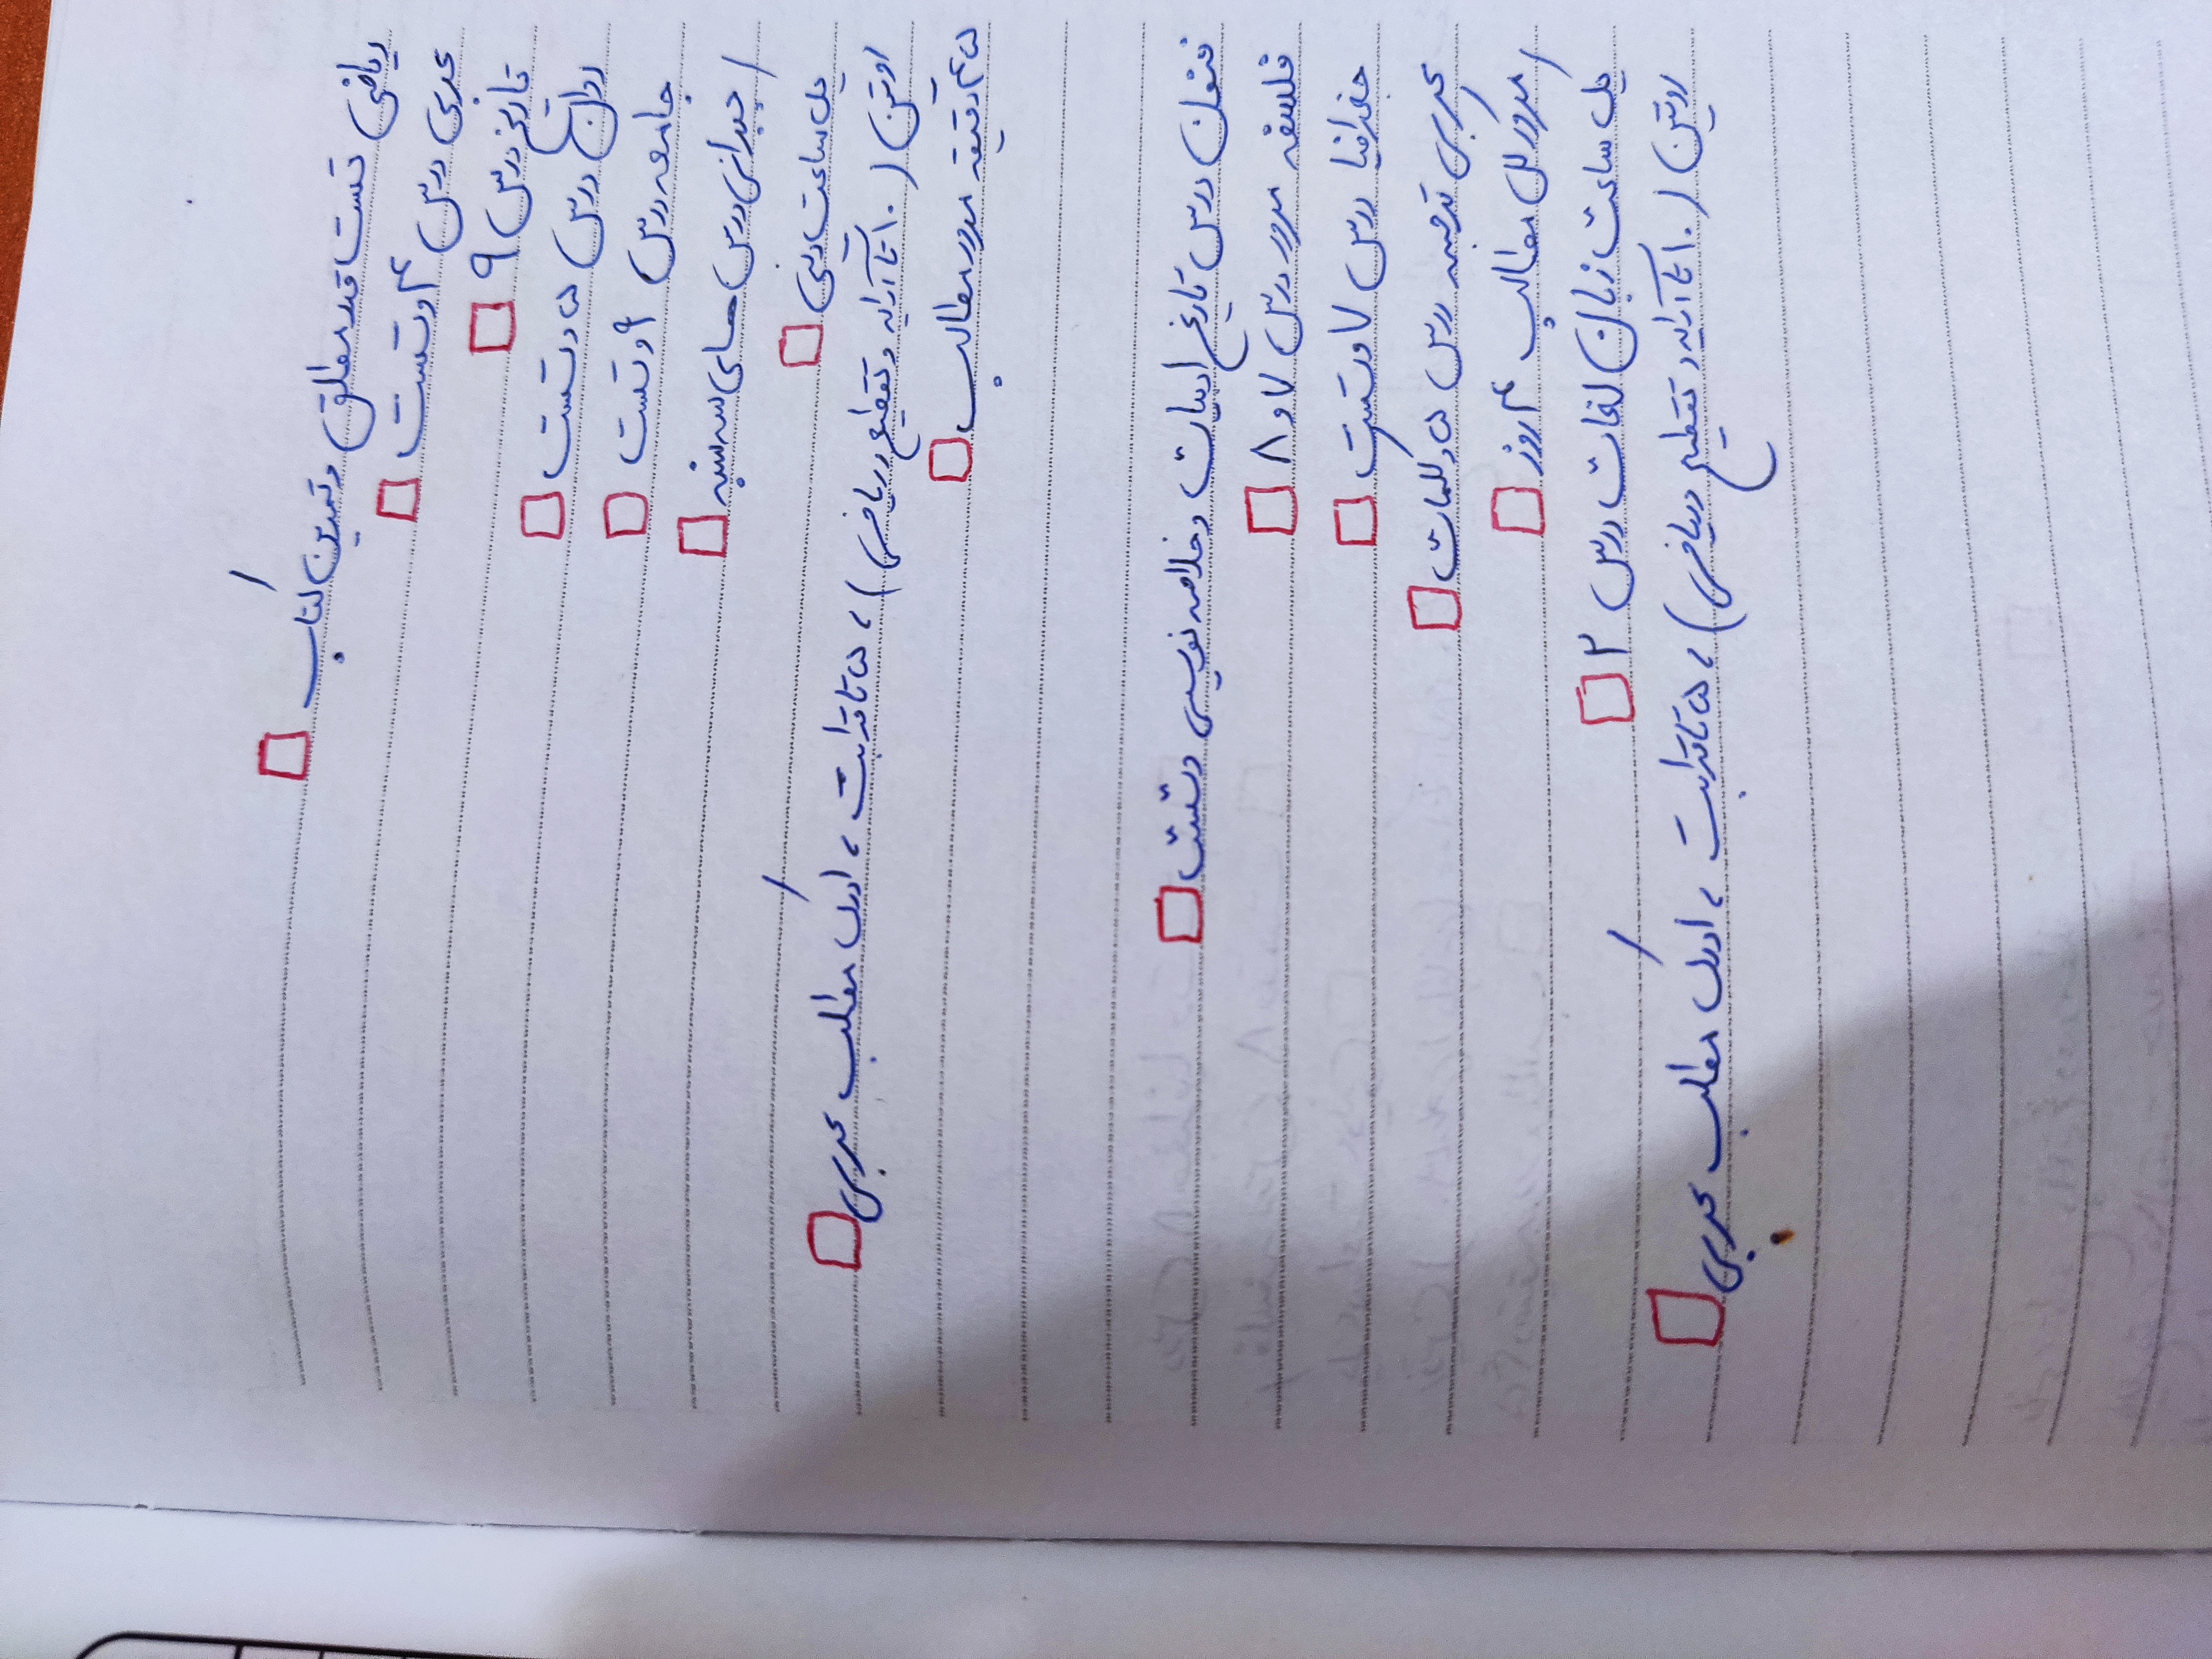 ریاضی تست قدر مطلق و تمرین کتاب
عربی درس ۴ و تست
تاریخ درس ۹
روان درس ۵ و تست
جامعه درس ۶ و تست
جبرانی درس های سه شنبه
یک ساعت دینی
روتین (۱۰ تا آرایه و تقطیع ریاضی)، ۵ تا قرابت، ادراک مطلب عربی
۴۵ دقیقه مرور مطالب
فنون درس تاریخ ادبیات و خلاصه نویسی و تست
فلسفه مرور درس ۷ و ۸
جغرافیا درس ۷ و تست
عربی ترجمه درس ۵ و کلمات
مرور کل مطالب ۴ روز
یک ساعت زبان لغات درس ۲
روتین (۱۰ تا آرایه و تقطیع و ریاضی)، ۵ تا قرابت، ادراک مطلب عربی